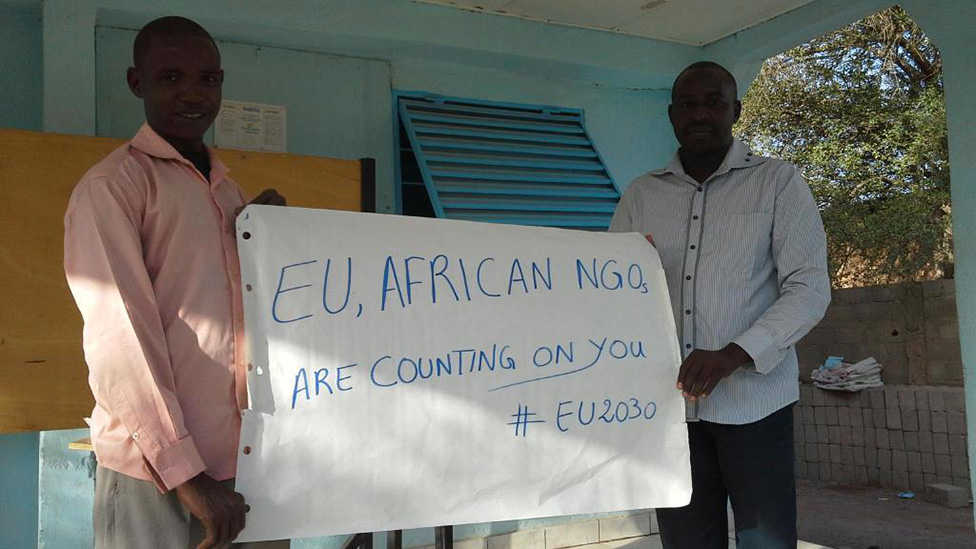 EU, AFRICAN NGOs
ARE COUNTING ON YOU
# EU2030